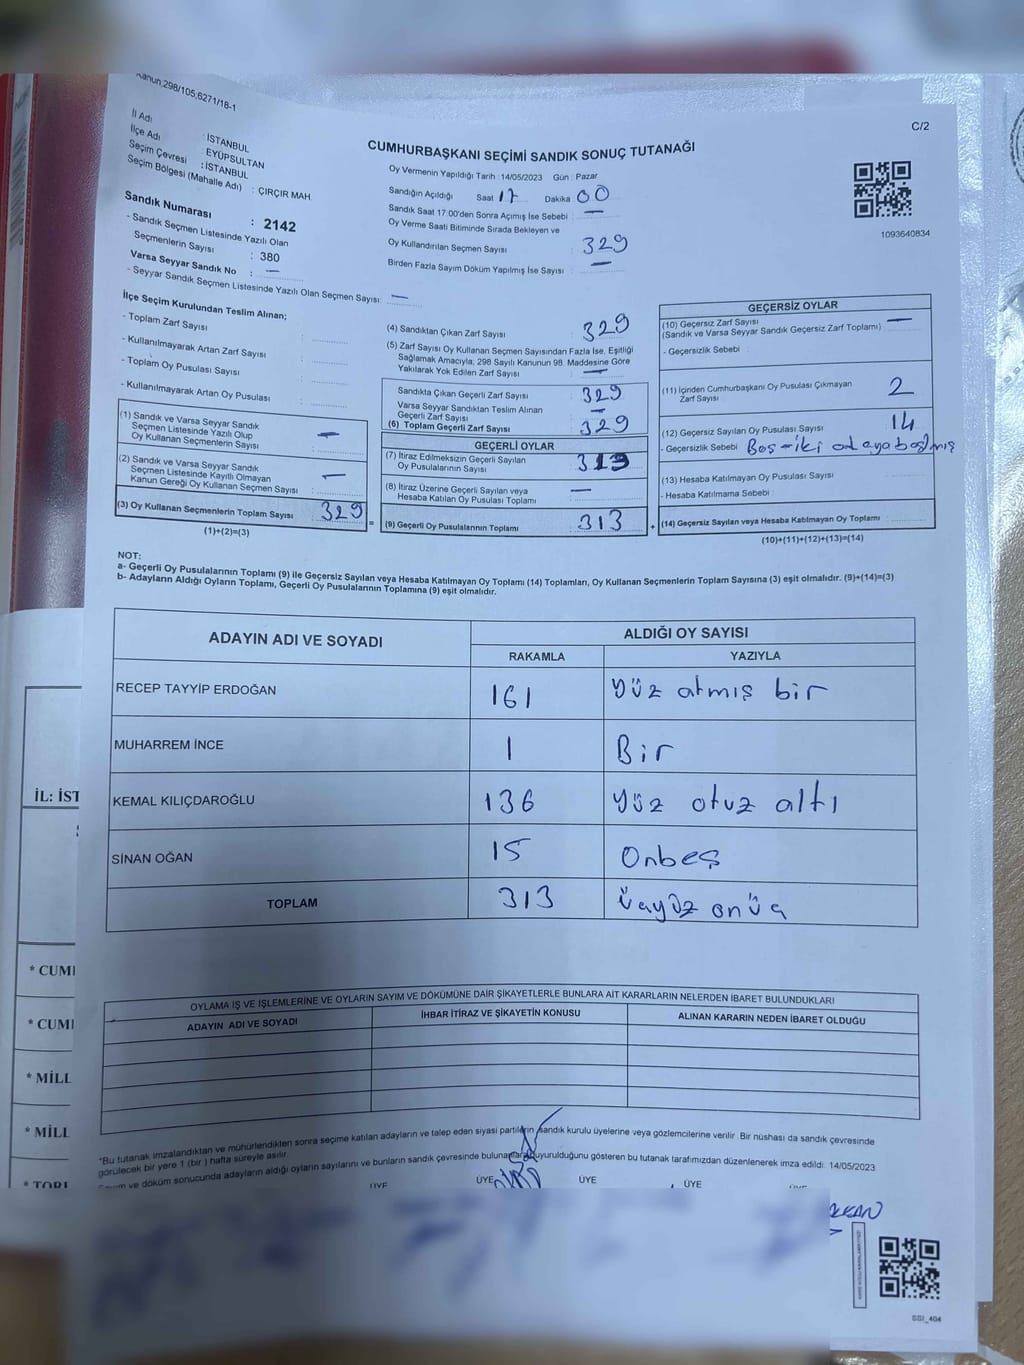 Kanun;298/105,6271/18-1
C/2
İl Adı : İSTANBUL
İlçe Adı : EYÜPSULTAN
Seçim Çevresi : İSTANBUL
Seçim Bölgesi (Mahalle Adı) : ÇIRÇIR MAH.
Sandık Numarası : 2142
- Sandık Seçmen Listesinde Yazılı Olan
Seçmenlerin Sayısı : 380
Varsa Seyyar Sandık No : —
- Seyyar Sandık Seçmen Listesinde Yazılı Olan Seçmen Sayısı: —
CUMHURBAŞKANI SEÇİMİ SANDIK SONUÇ TUTANAĞI
Oy Vermenin Yapıldığı Tarih : 14/05/2023 Gün : Pazar
Sandığın Açıldığı Saat 17 Dakika 00
Sandık Saat 17:00'den Sonra Açımış İse Sebebi : —
Oy Verme Saati Bitiminde Sırada Bekleyen ve
Oy Kullandırılan Seçmen Sayısı : 329
Birden Fazla Sayım Döküm Yapılmış İse Sayısı : —
1093640834
İlçe Seçim Kurulundan Teslim Alınan;
- Toplam Zarf Sayısı :
- Kullanılmayarak Artan Zarf Sayısı :
- Toplam Oy Pusulası Sayısı :
- Kullanılmayarak Artan Oy Pusulası :
(1) Sandık ve Varsa Seyyar Sandık
Seçmen Listesinde Yazılı Olup
Oy Kullanan Seçmenlerin Sayısı : —
(2) Sandık ve Varsa Seyyar Sandık
Seçmen Listesinde Kayıtlı Olmayan
Kanun Gereği Oy Kullanan Seçmen Sayısı : —
(3) Oy Kullanan Seçmenlerin Toplam Sayısı : 329
(1)+(2)=(3)
(4) Sandıktan Çıkan Zarf Sayısı : 329
(5) Zarf Sayısı Oy Kullanan Seçmen Sayısından Fazla İse, Eşitliği
Sağlamak Amacıyla; 298 Sayılı Kanunun 98. Maddesine Göre
Yakılarak Yok Edilen Zarf Sayısı : —
Sandıkta Çıkan Geçerli Zarf Sayısı : 329
Varsa Seyyar Sandıktan Teslim Alınan
Geçerli Zarf Sayısı : —
(6) Toplam Geçerli Zarf Sayısı : 329
GEÇERLİ OYLAR
(7) İtiraz Edilmeksizin Geçerli Sayılan
Oy Pusulalarının Sayısı : 313
(8) İtiraz Üzerine Geçerli Sayılan veya
Hesaba Katılan Oy Pusulası Toplamı : —
= (9) Geçerli Oy Pusulalarının Toplamı : 313 +
GEÇERSİZ OYLAR
(10) Geçersiz Zarf Sayısı : —
(Sandık ve Varsa Seyyar Sandık Geçersiz Zarf Toplamı)
- Geçersizlik Sebebi :
(11) İçinden Cumhurbaşkanı Oy Pusulası Çıkmayan
Zarf Sayısı : 2
(12) Geçersiz Sayılan Oy Pusulası Sayısı : 14
- Geçersizlik Sebebi : Boş-iki adaya basmış
(13) Hesaba Katılmayan Oy Pusulası Sayısı :
- Hesaba Katılmama Sebebi :
(14) Geçersiz Sayılan veya Hesaba Katılmayan Oy Toplamı :
(10)+(11)+(12)+(13)=(14)
NOT:
a- Geçerli Oy Pusulalarının Toplamı (9) ile Geçersiz Sayılan veya Hesaba Katılmayan Oy Toplamı (14) Toplamları, Oy Kullanan Seçmenlerin Toplam Sayısına (3) eşit olmalıdır. (9)+(14)=(3)
b- Adayların Aldığı Oyların Toplamı, Geçerli Oy Pusulalarının Toplamına (9) eşit olmalıdır.
ADAYIN ADI VE SOYADI
ALDIĞI OY SAYISI
RAKAMLA YAZIYLA
RECEP TAYYİP ERDOĞAN 161 yüz atmış bir
MUHARREM İNCE 1 Bir
KEMAL KILIÇDAROĞLU 136 yüz otuz altı
SİNAN OĞAN 15 Onbeş
TOPLAM 313 üçyüz onüç
OYLAMA İŞ VE İŞLEMLERİNE VE OYLARIN SAYIM VE DÖKÜMÜNE DAİR ŞİKAYETLERLE BUNLARA AİT KARARLARIN NELERDEN İBARET BULUNDUKLARI
ADAYIN ADI VE SOYADI İHBAR İTİRAZ VE ŞİKAYETİN KONUSU ALINAN KARARIN NEDEN İBARET OLDUĞU
*Bu tutanak imzalandıktan ve mühürlendikten sonra seçime katılan adayların ve talep eden siyasi partilerin sandık kurulu üyelerine veya gözlemcilerine verilir. Bir nüshası da sandık çevresinde
görülecek bir yere 1 (bir) hafta süreyle asılır.
ve döküm sonucunda adayların aldığı oyların sayılarını ve bunların sandık çevresinde duyurulduğunu gösteren bu tutanak tarafımızdan düzenlenerek imza edildi. 14/05/2023
ÜYE ÜYE ÜYE ÜYE
SSI_404
İL: İST
* CUMI
* CUMI
* MİLL
* MİLL
* TOPL